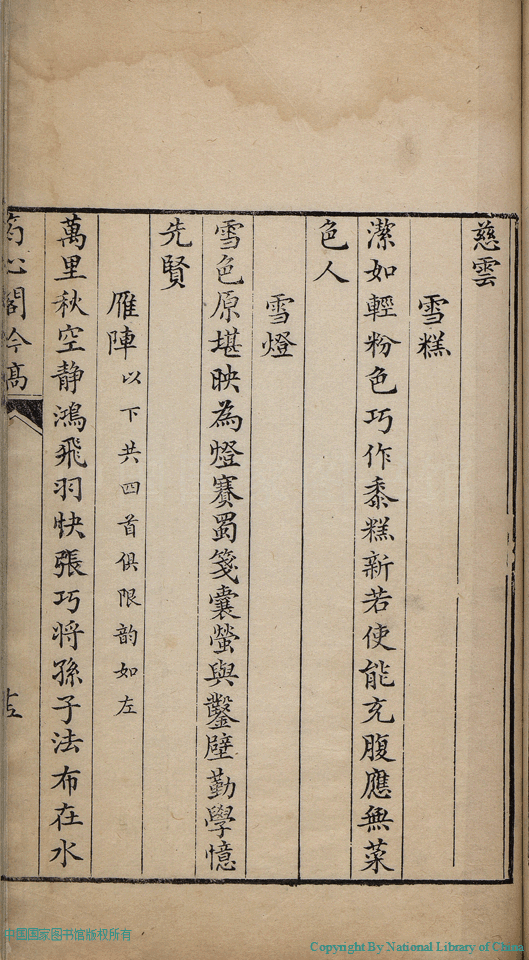 慈雲
雪糕
潔如輕粉色巧作黍糕新若使能充腹應無菜
色人
雪燈
雪色原堪映為燈賽蜀箋囊螢與鑿壁勤學憶
先賢
雁陣 以下共四首俱限韵如左
萬里秋空静鴻飛羽快張巧将孫子法布在水
心閣吟高
中国国家图书馆版权所有
Copyright By National Library of China